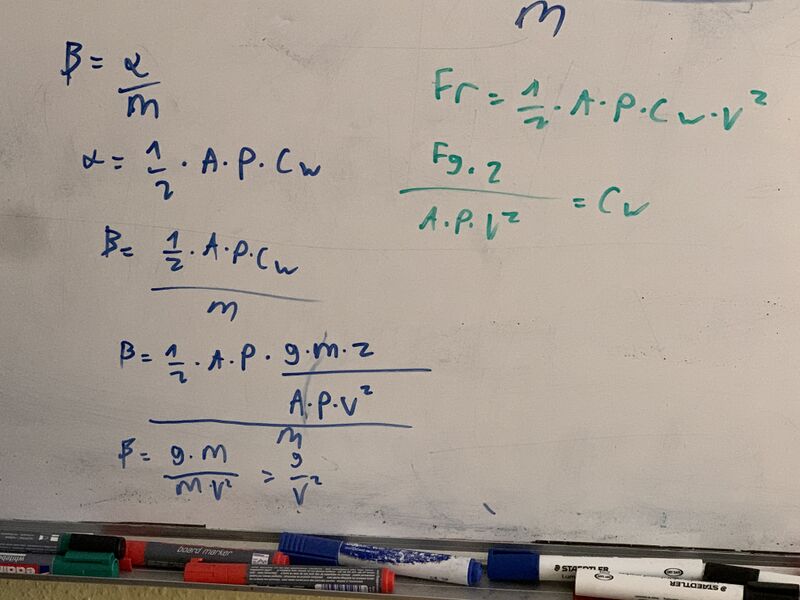 m
β = α/m
α = 1/2 · A · P · Cw
β = 1/2 · A · P · Cw / m
β = 1/2 · A · P · g · m · 2 / A · P · V² / m
β = g · m / m · V² = g / V²
Fr = 1/2 · A · P · Cw · V²
Fg · 2 / A · P · V² = Cw
board marker
STAEDTLER
STAEDTLER